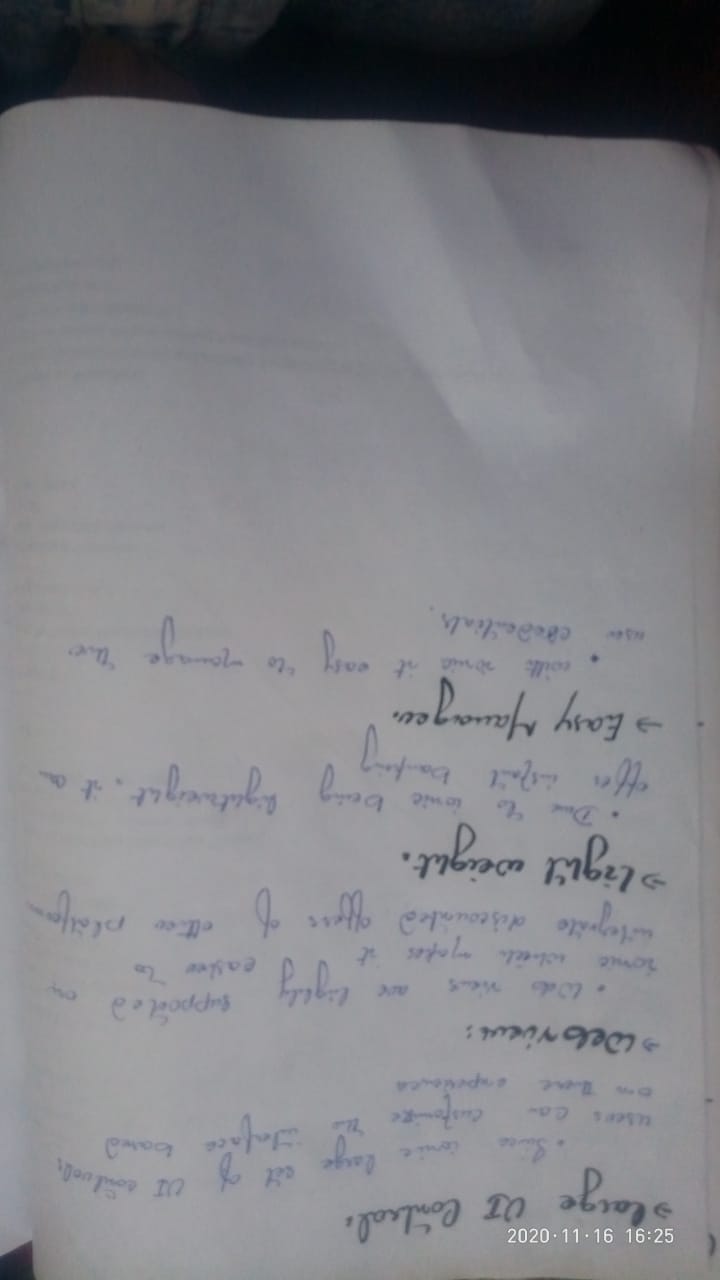 → Large UI Control.
• Since ionic large set of UI controls
users can customize the interface based
on there experience
→ Web view:
• Web views are highly supported on
ionic which makes it easier to
integrate discounted offers of other platform
→ Light weight.
• Due to ionic being lightweight, it can
offer instant banking
→ Easy Manage
• with ionic it easy to manage the
user credentials.
2020·11·16 16:25